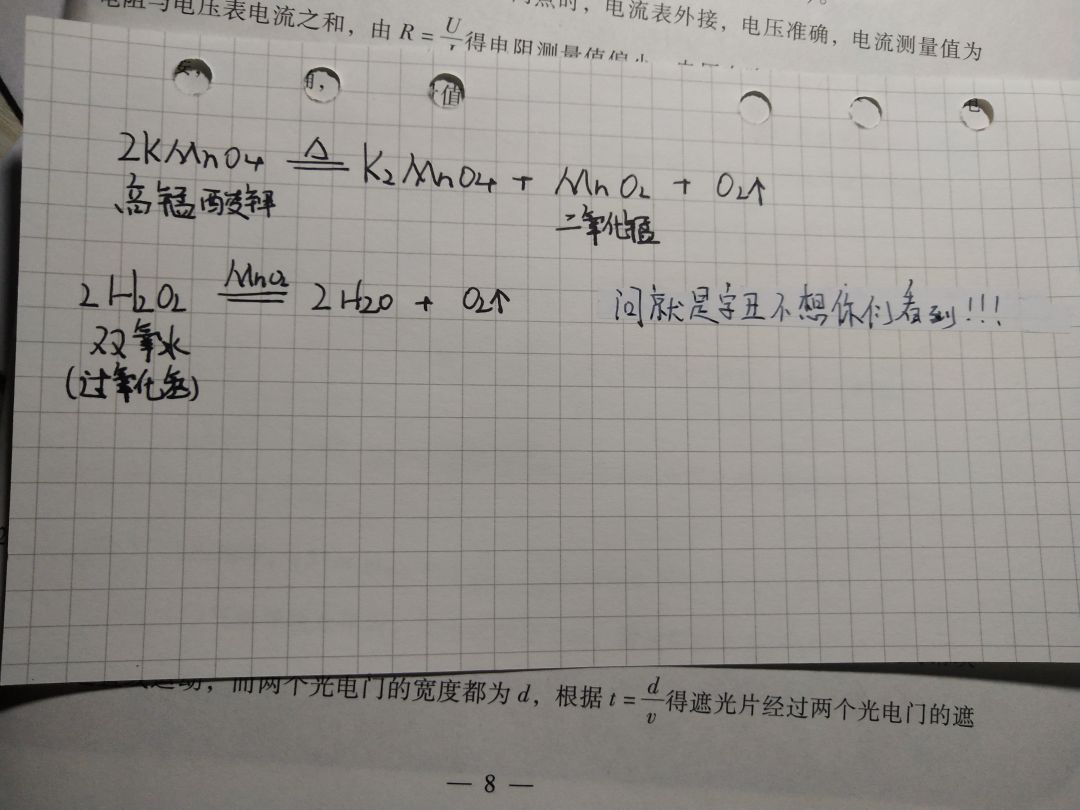 电阻与电压表电流之和，由 R = U/I 得电阻测量值偏小
时，电流表外接，电压准确，电流测量值为
值
电
2KMnO4 ≜ K2MnO4 + MnO2 + O2↑
高锰酸钾
二氧化锰
2H2O2 =MnO2= 2H2O + O2↑
双氧水
(过氧化氢)
问就是字丑不想你们看到!!!
而两个光电门的宽度都为 d，根据 t = d/v 得遮光片经过两个光电门的遮
— 8 —